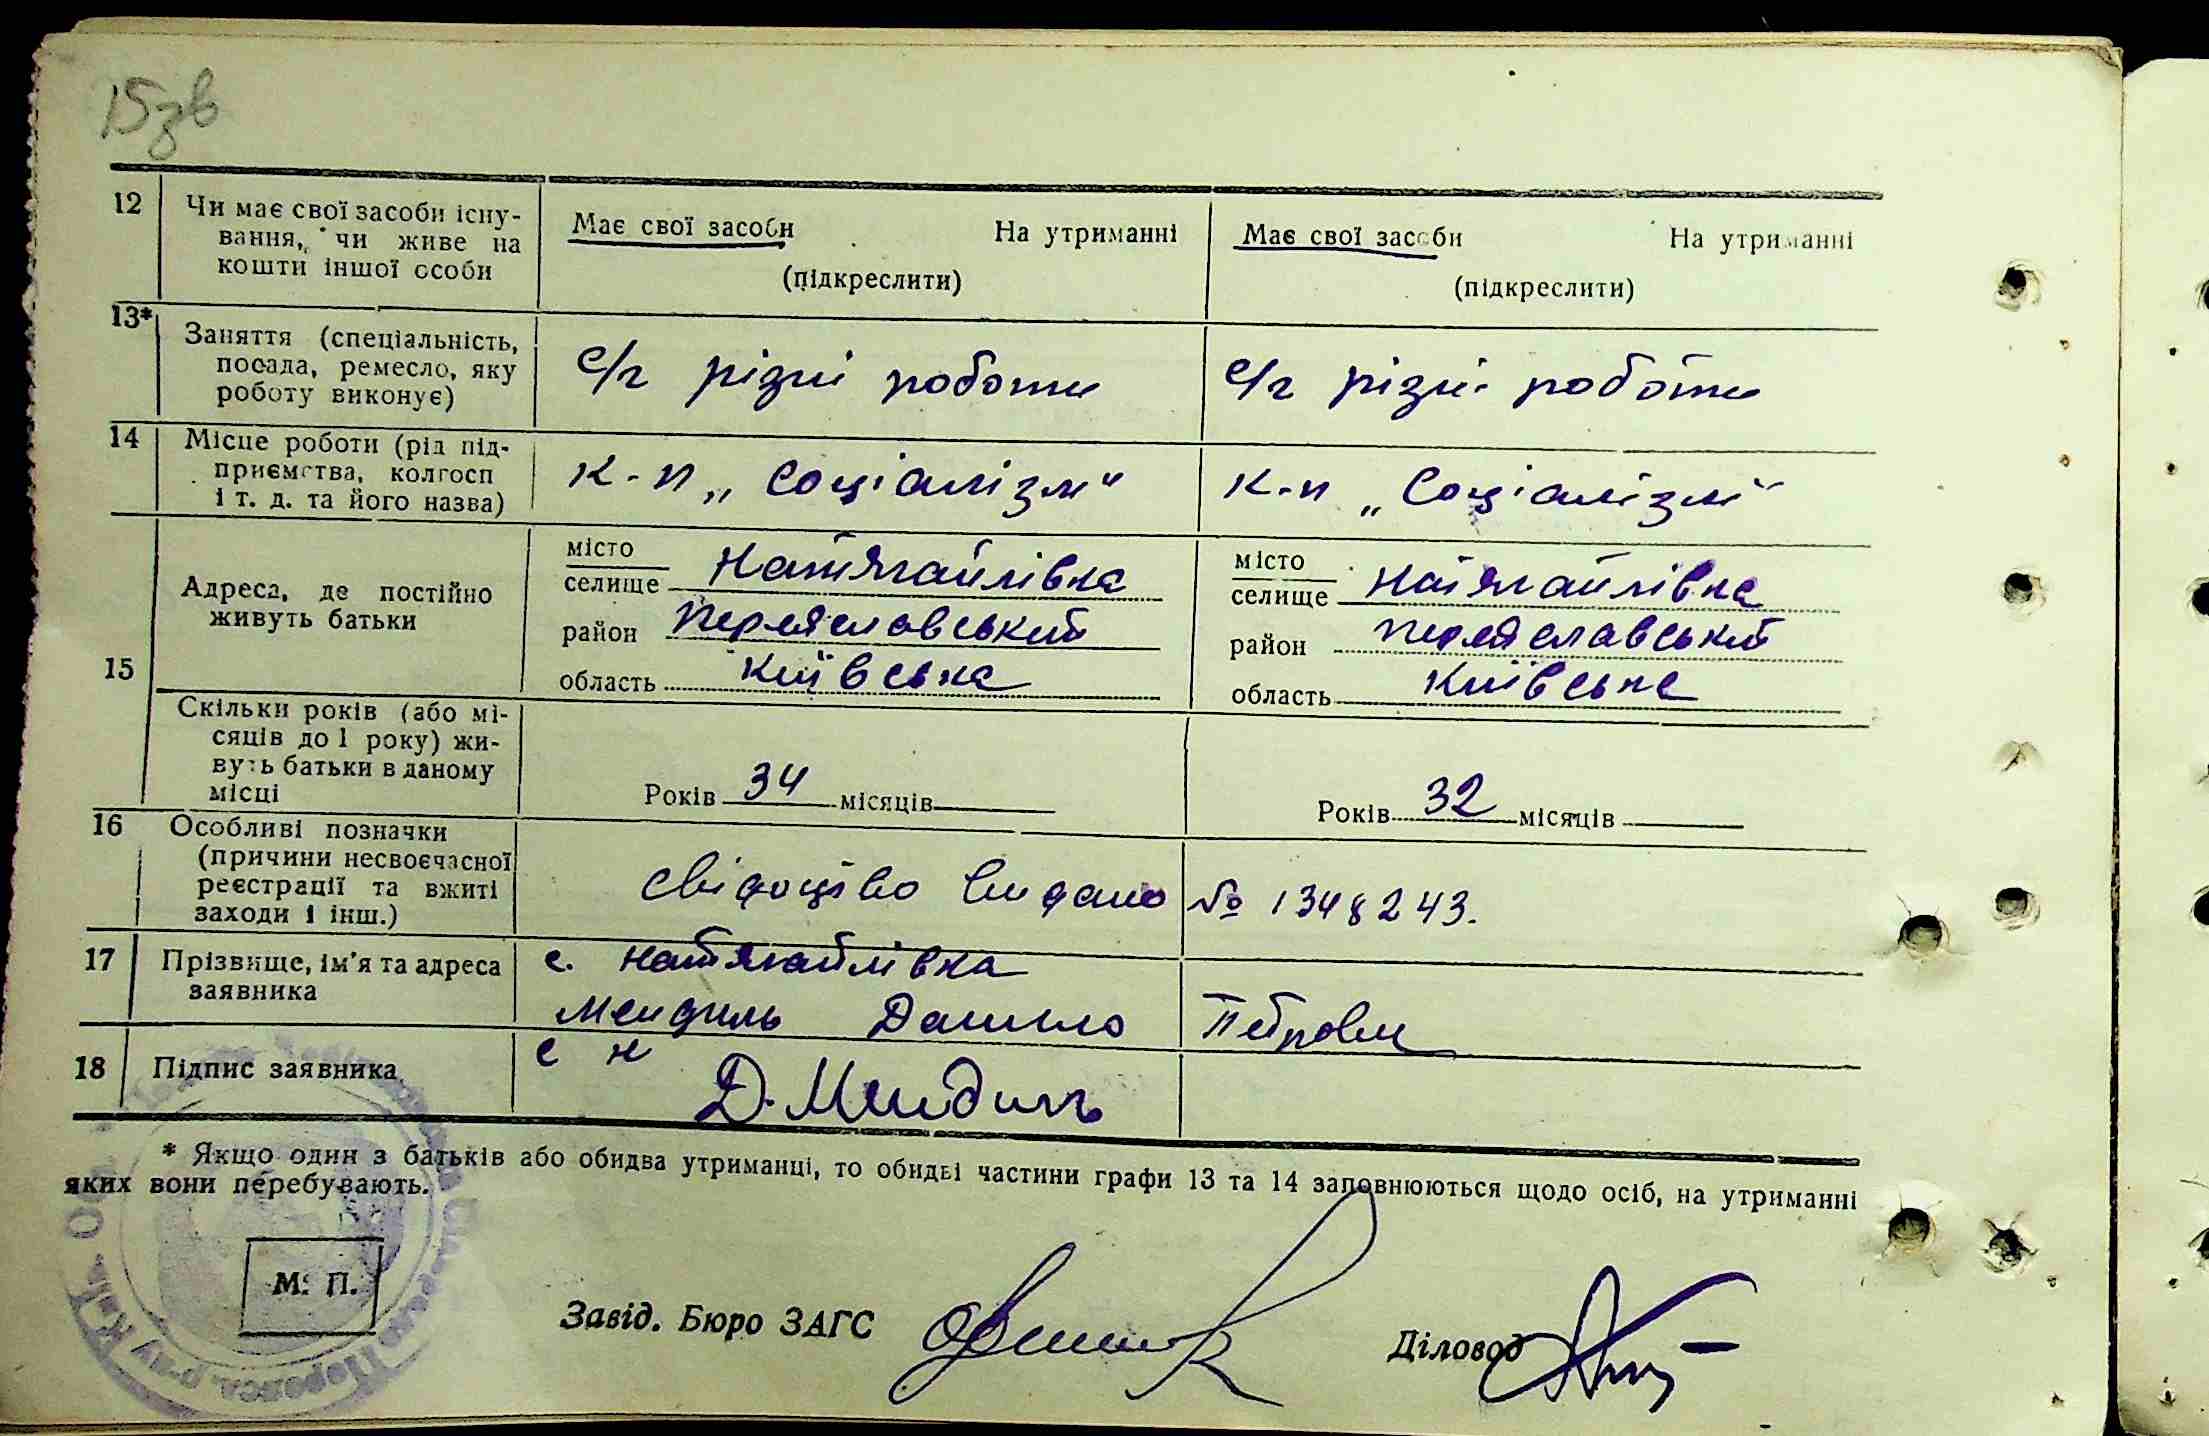 15зв
12 Чи має свої засоби існу- Має свої засоби На утриманні Має свої засоби На утриманні
вання, чи живе на
кошти іншої особи (підкреслити) (підкреслити)
13* Заняття (спеціальність,
посада, ремесло, яку с/г різні роботи с/г різні роботи
роботу виконує)
14 Місце роботи (рід під-
приємства, колгосп к-п „Соціалізм" к-п „Соціалізм"
і т. д. та його назва)
15 Адреса, де постійно
живуть батьки
місто
селище Натягайлівка
район Переяславський
область Київська
місто
селище Натягайлівка
район Переяславський
область Київська
Скільки років (або мі-
сяців до 1 року) жи-
вуть батьки в даному
місці
Років 34 місяців Років 32 місяців
16 Особливі позначки
(причини несвоєчасної
реєстрації та вжиті
заходи і інш.)
свідоцтво видано № 1348243.
17 Прізвище, ім'я та адреса
заявника
с. Натягайлівка
Мендиль Данило Петрович
18 Підпис заявника
Д. Мендиль
* Якщо один з батьків або обидва утриманці, то обидві частини графи 13 та 14 заповнюються щодо осіб, на утриманні
яких вони перебувають.
М. П.
Завід. Бюро ЗАГС Діловод